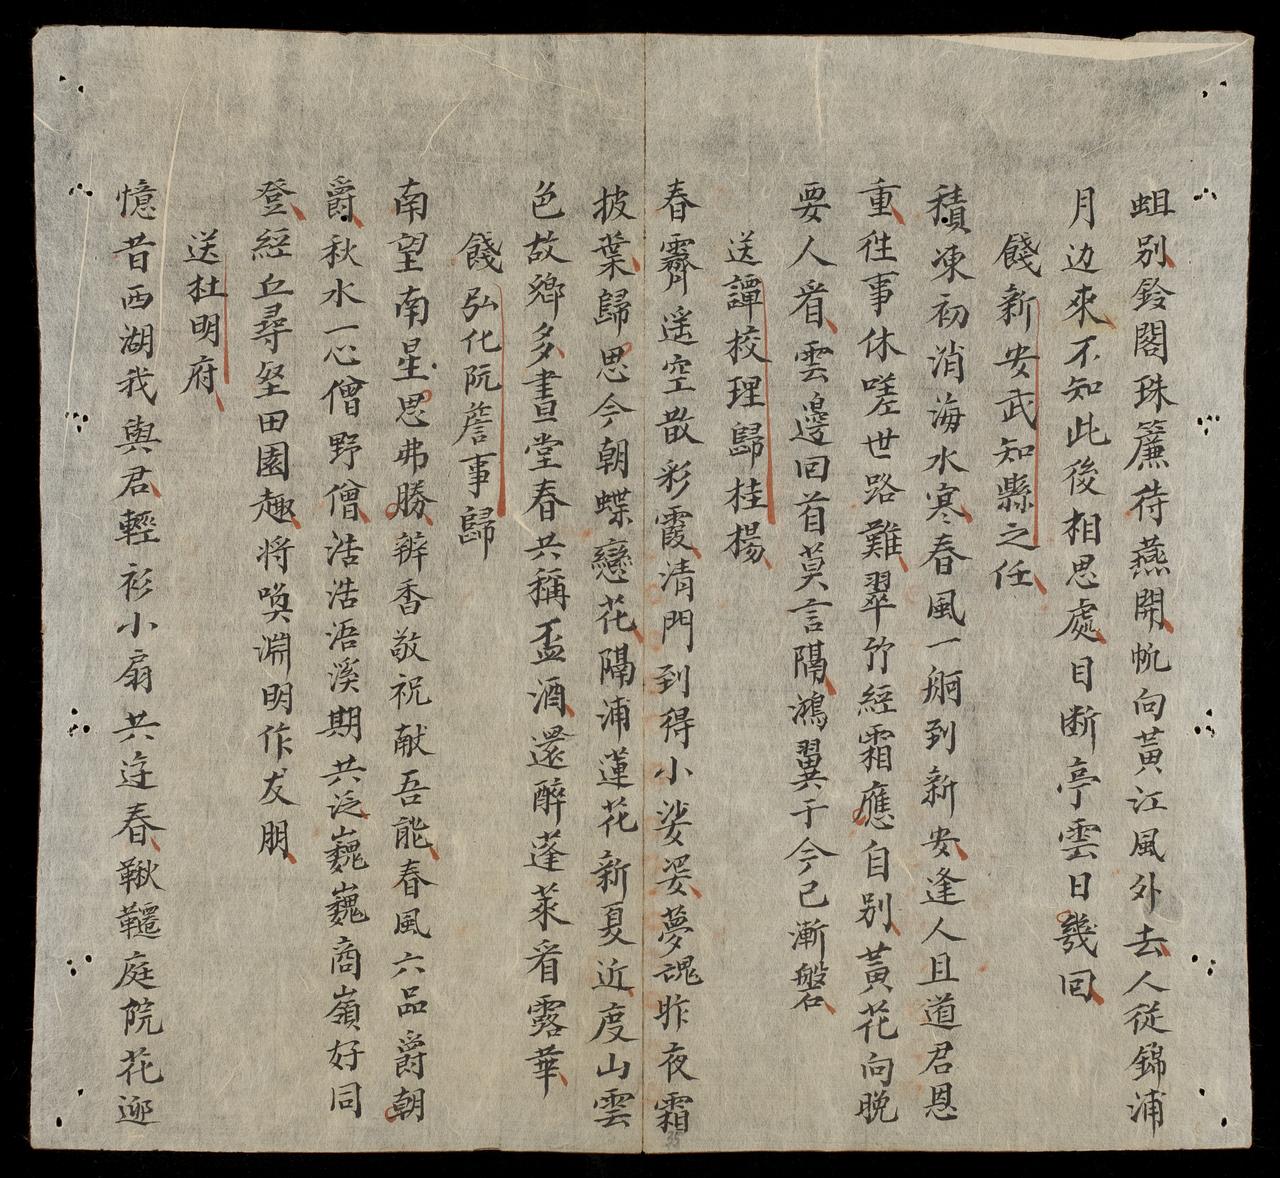 蛆別鈴閣珠簾待燕開帆向黃江風外去人從錦浦
月边來不知此後相思處目断亭雲日幾回
餞新安武知縣之任
積凍初消海水寒春風一舸到新安逢人且道君恩
重徃事休嗟世路難翠竹經霜應自别黃花向晚
要人看雲邊回首莫言隔鴻翼于今已漸磐
送譚校理歸桂楊
春霽遥空散彩霞清門到得小娑娑夢魂昨夜霜
披葉歸思今朝蝶戀花隔浦蓮花新夏近度山雲
色故鄉多晝堂春共稱盃酒還醉蓬萊看露華
餞弘化阮詹事歸
南望南星思弗勝辨香敬祝献吾能春風六品爵朝
爵秋水一心僧野僧浩浩浯溪期共泛巍巍商嶺好同
登經丘尋壑田園趣将喚淵明作友朋
送杜明府
憶昔西湖我與君輕衫小扇共迕春鞦韆庭院花迎